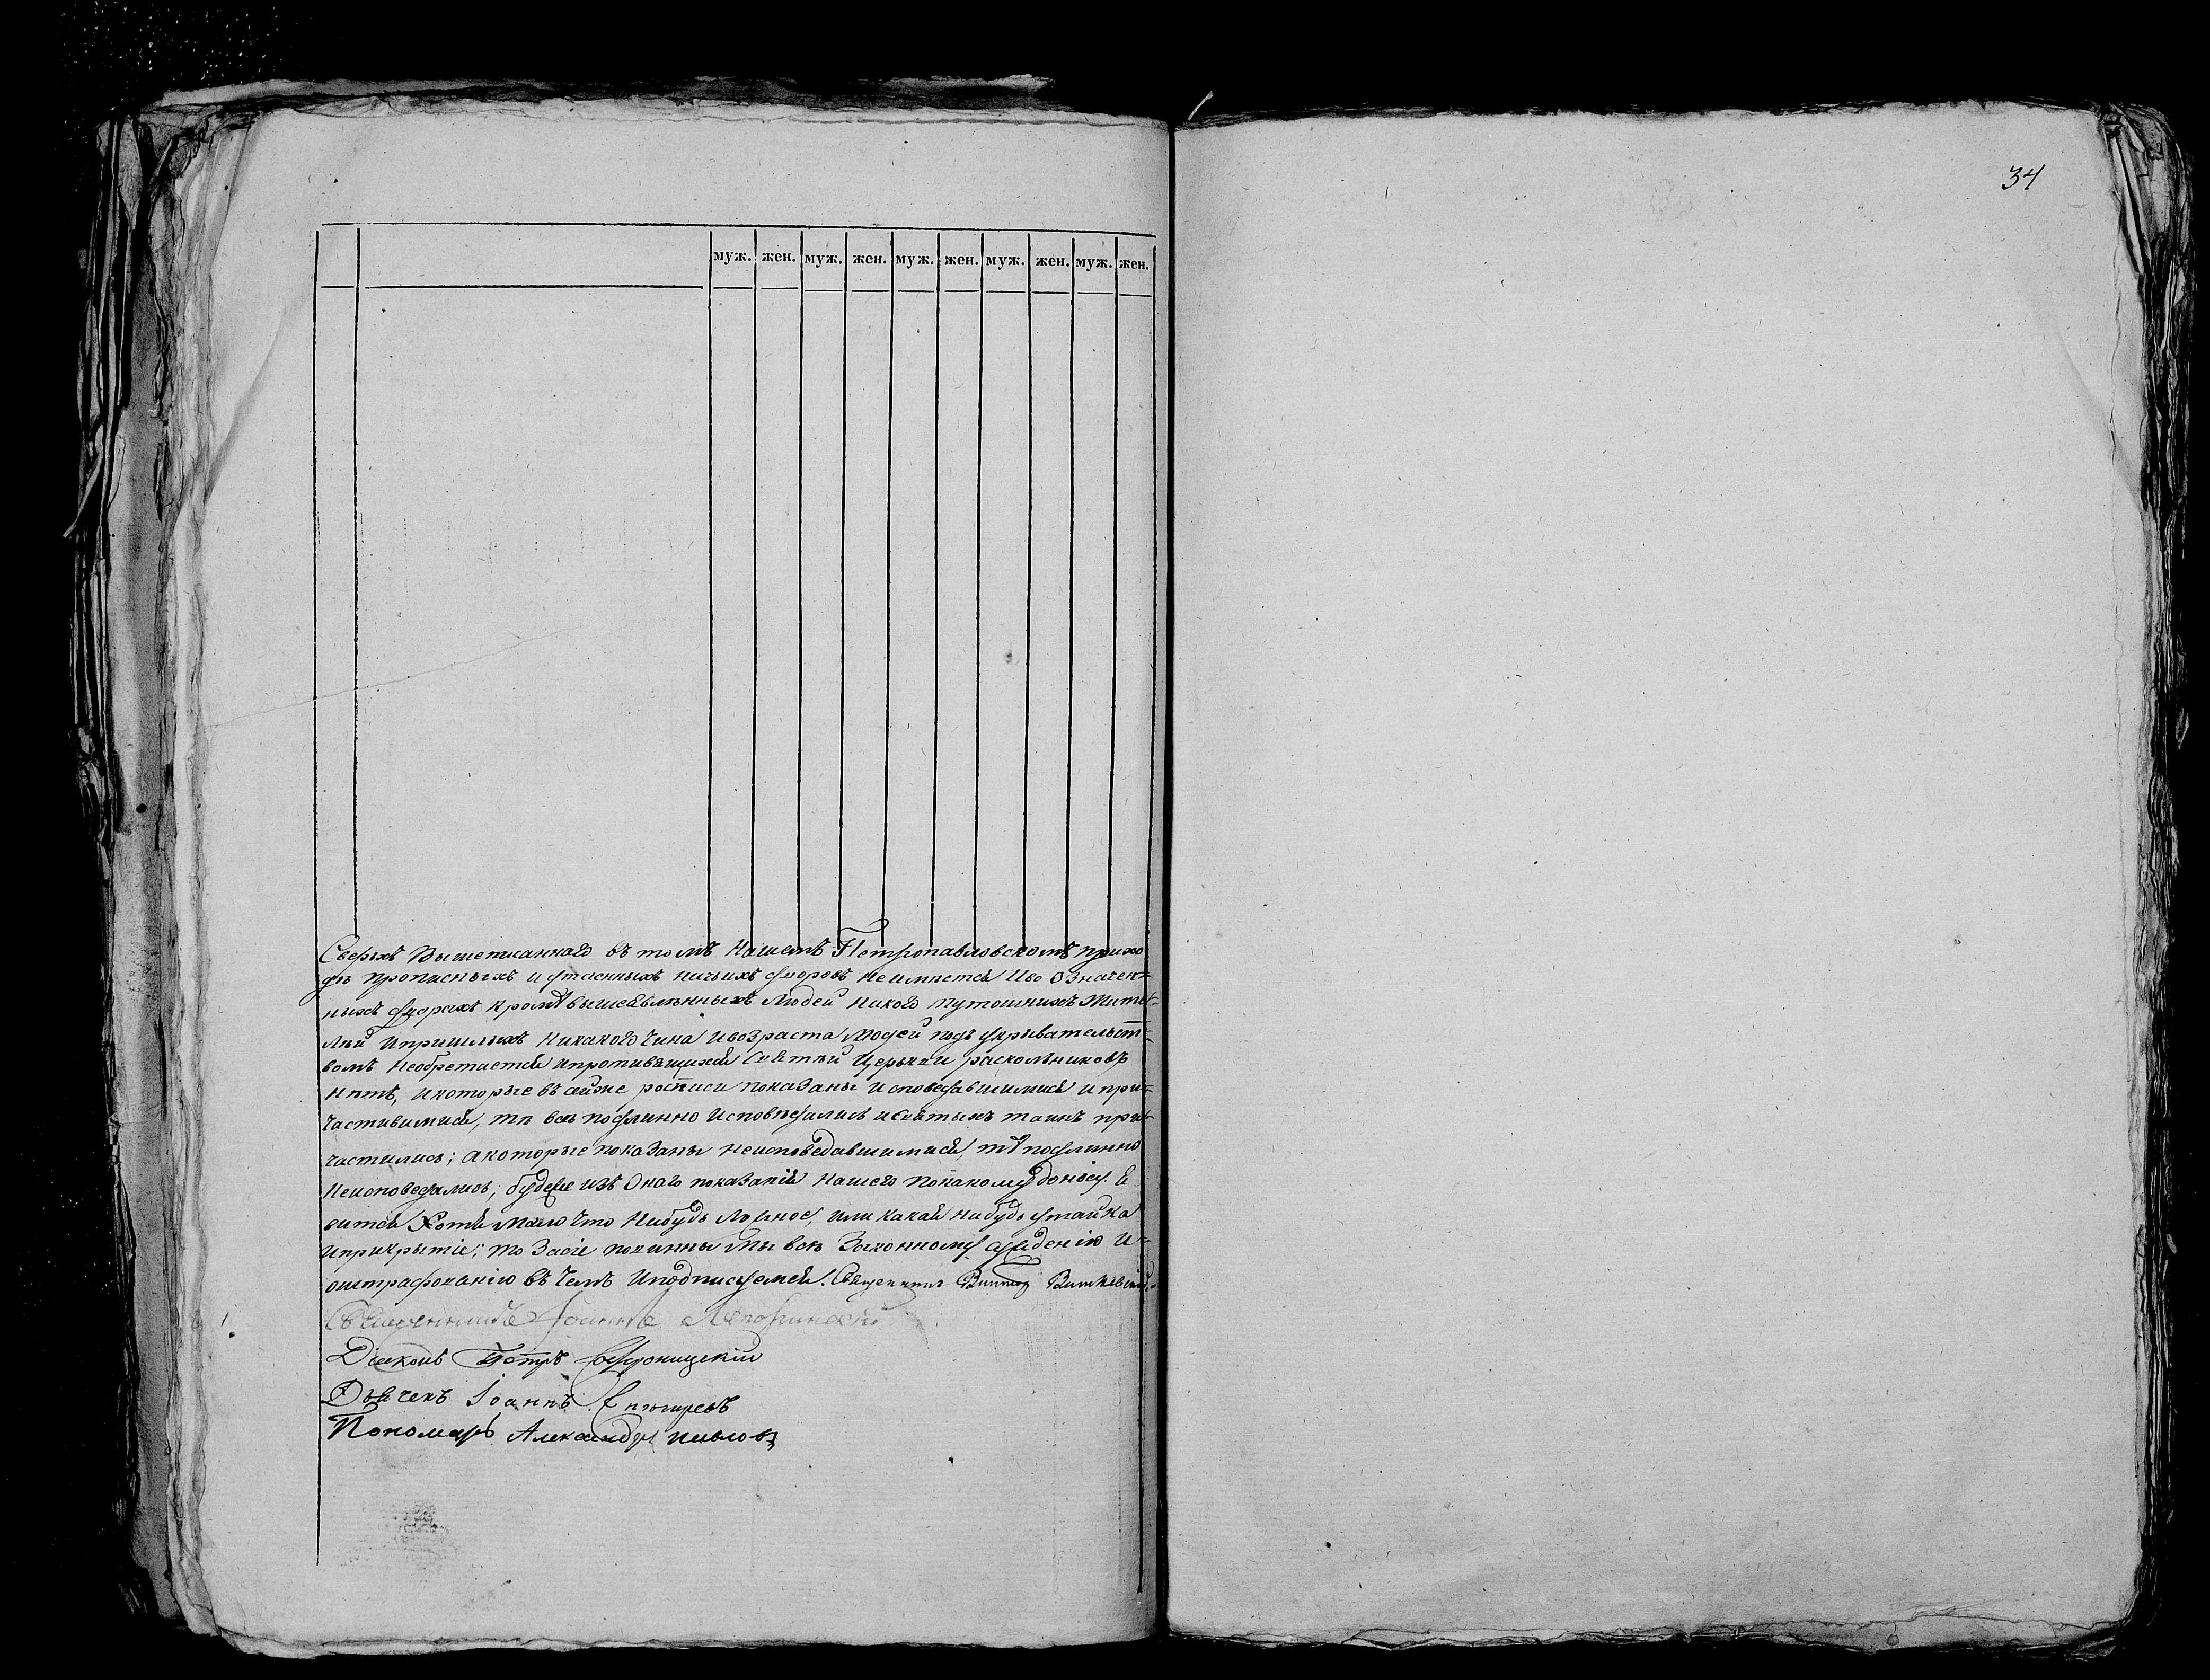 34
муж. жен. муж. жен. муж. жен. муж. жен. муж. жен.
Сверхъ Вышеписаннаго въ томъ Нашемъ Петропавловскомъ прихо
дѣ прописныхъ и утаенныхъ ничьихъ дворовъ неимѣется Иво Означен=
ныхъ дворахъ кромѣ вышеявленныхъ Людей Никого тутошнихъ Жите=
лей ипришлыхъ Никакого Чина Ивозраста Людей подъ укрывательст=
вомъ Необретается ипротивящихся Святѣй Церькви раскольниковъ
нѣтъ, икоторые въ сейже росписи показаны Исповедавшимися и при=
частившимися, тѣ всѣ подлинно Исповѣдались иСвятыхъ таинъ при=
частились; акоторые показаны неисповедавшимися, тѣ подлинно
Неисповедались; будеже изъ Онаго показанія Нашего Покакому доносу Я
вится Хотя Мало Что Нибудь Ложное, или какая нибудь утайка
иприкрытіе; то Засіе повинны Мы всѣ Законному сужденію И=
оштрафованію въ Чемъ Иподписуемся. Священникъ Викторъ Витковскій.
Священникъ Іоаннъ
Діаконъ Петръ
Дьячекъ Іоаннъ
Пономарь Александръ Павловъ